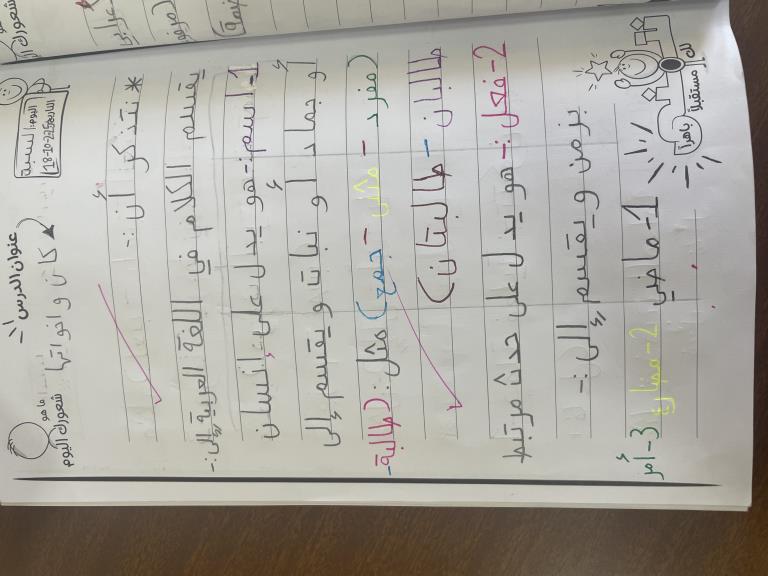 اليوم: السبت
18-10-2025
عنوان الدرس
كان وأخواتها
ما هو
شعورك اليوم
* نتذكر أن :-
يقسم الكلام في اللغة العربية إلى :-
1- اسم :- هو يدل على إنسان
أو جماد أو نبات ويقسم إلى
(مفرد - مثنى - جمع) مثل : (طالبة -
طالبان - طالبتان)
2- فعل :- هو يدل على حدث مرتبط
بزمن ويقسم إلى :-
1- ماضي 2- مضارع 3- أمر
لك مستقبلاً باهراً
شعورك